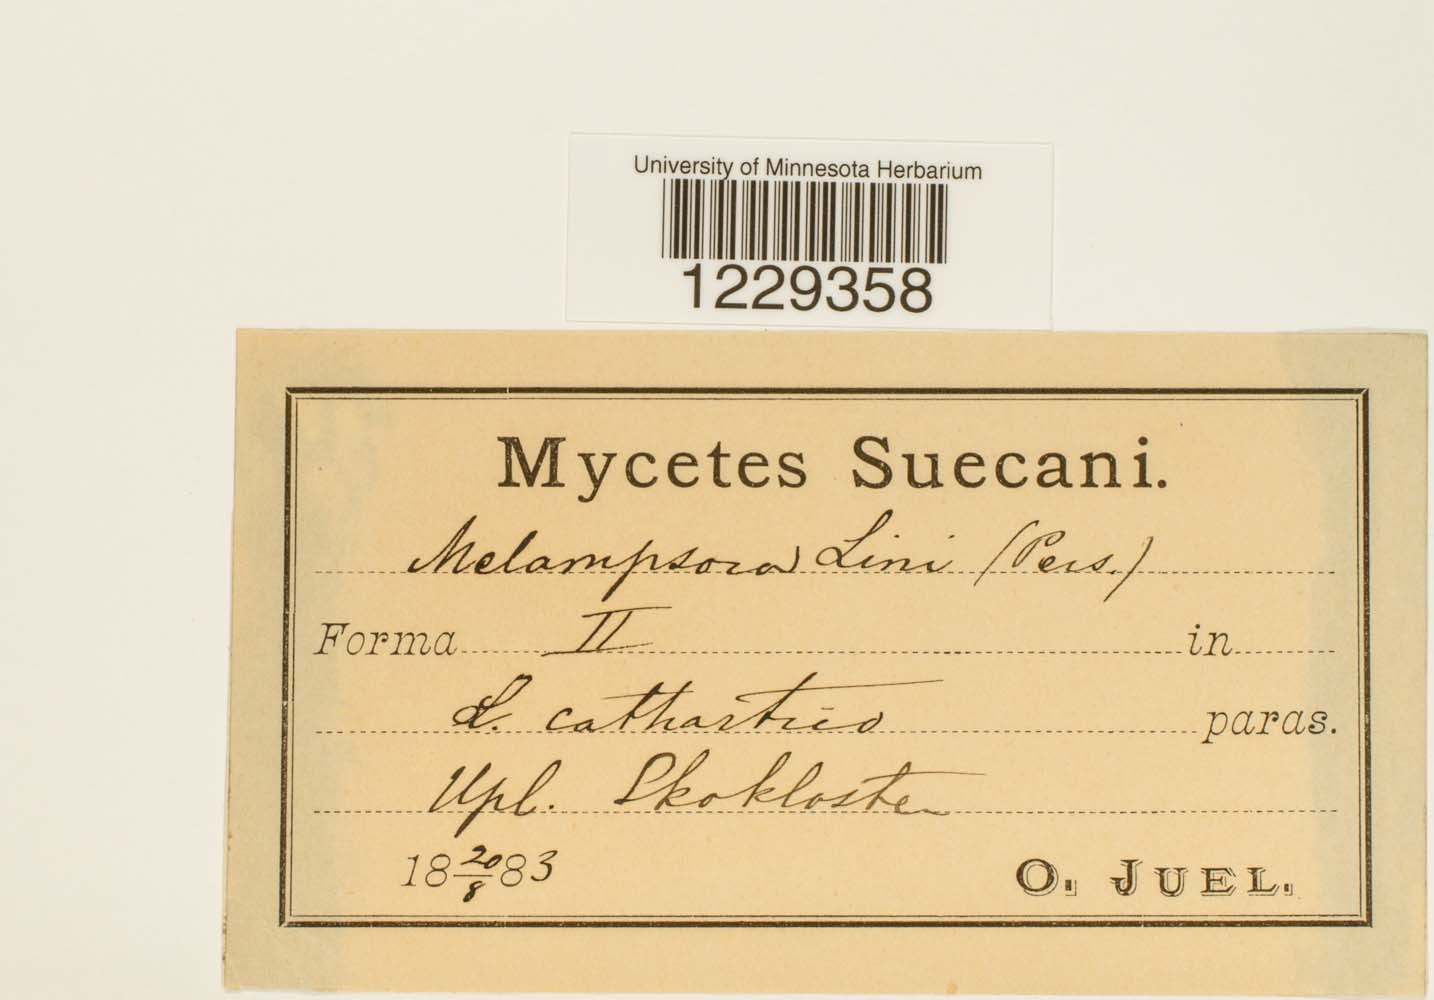 University of Minnesota Herbarium
1229358
Mycetes Suecani.
Melampsora Lini (Pers.)
Forma II in
L. cathartico paras.
Upl. Skokloster
18 20/8 83 O. JUEL.